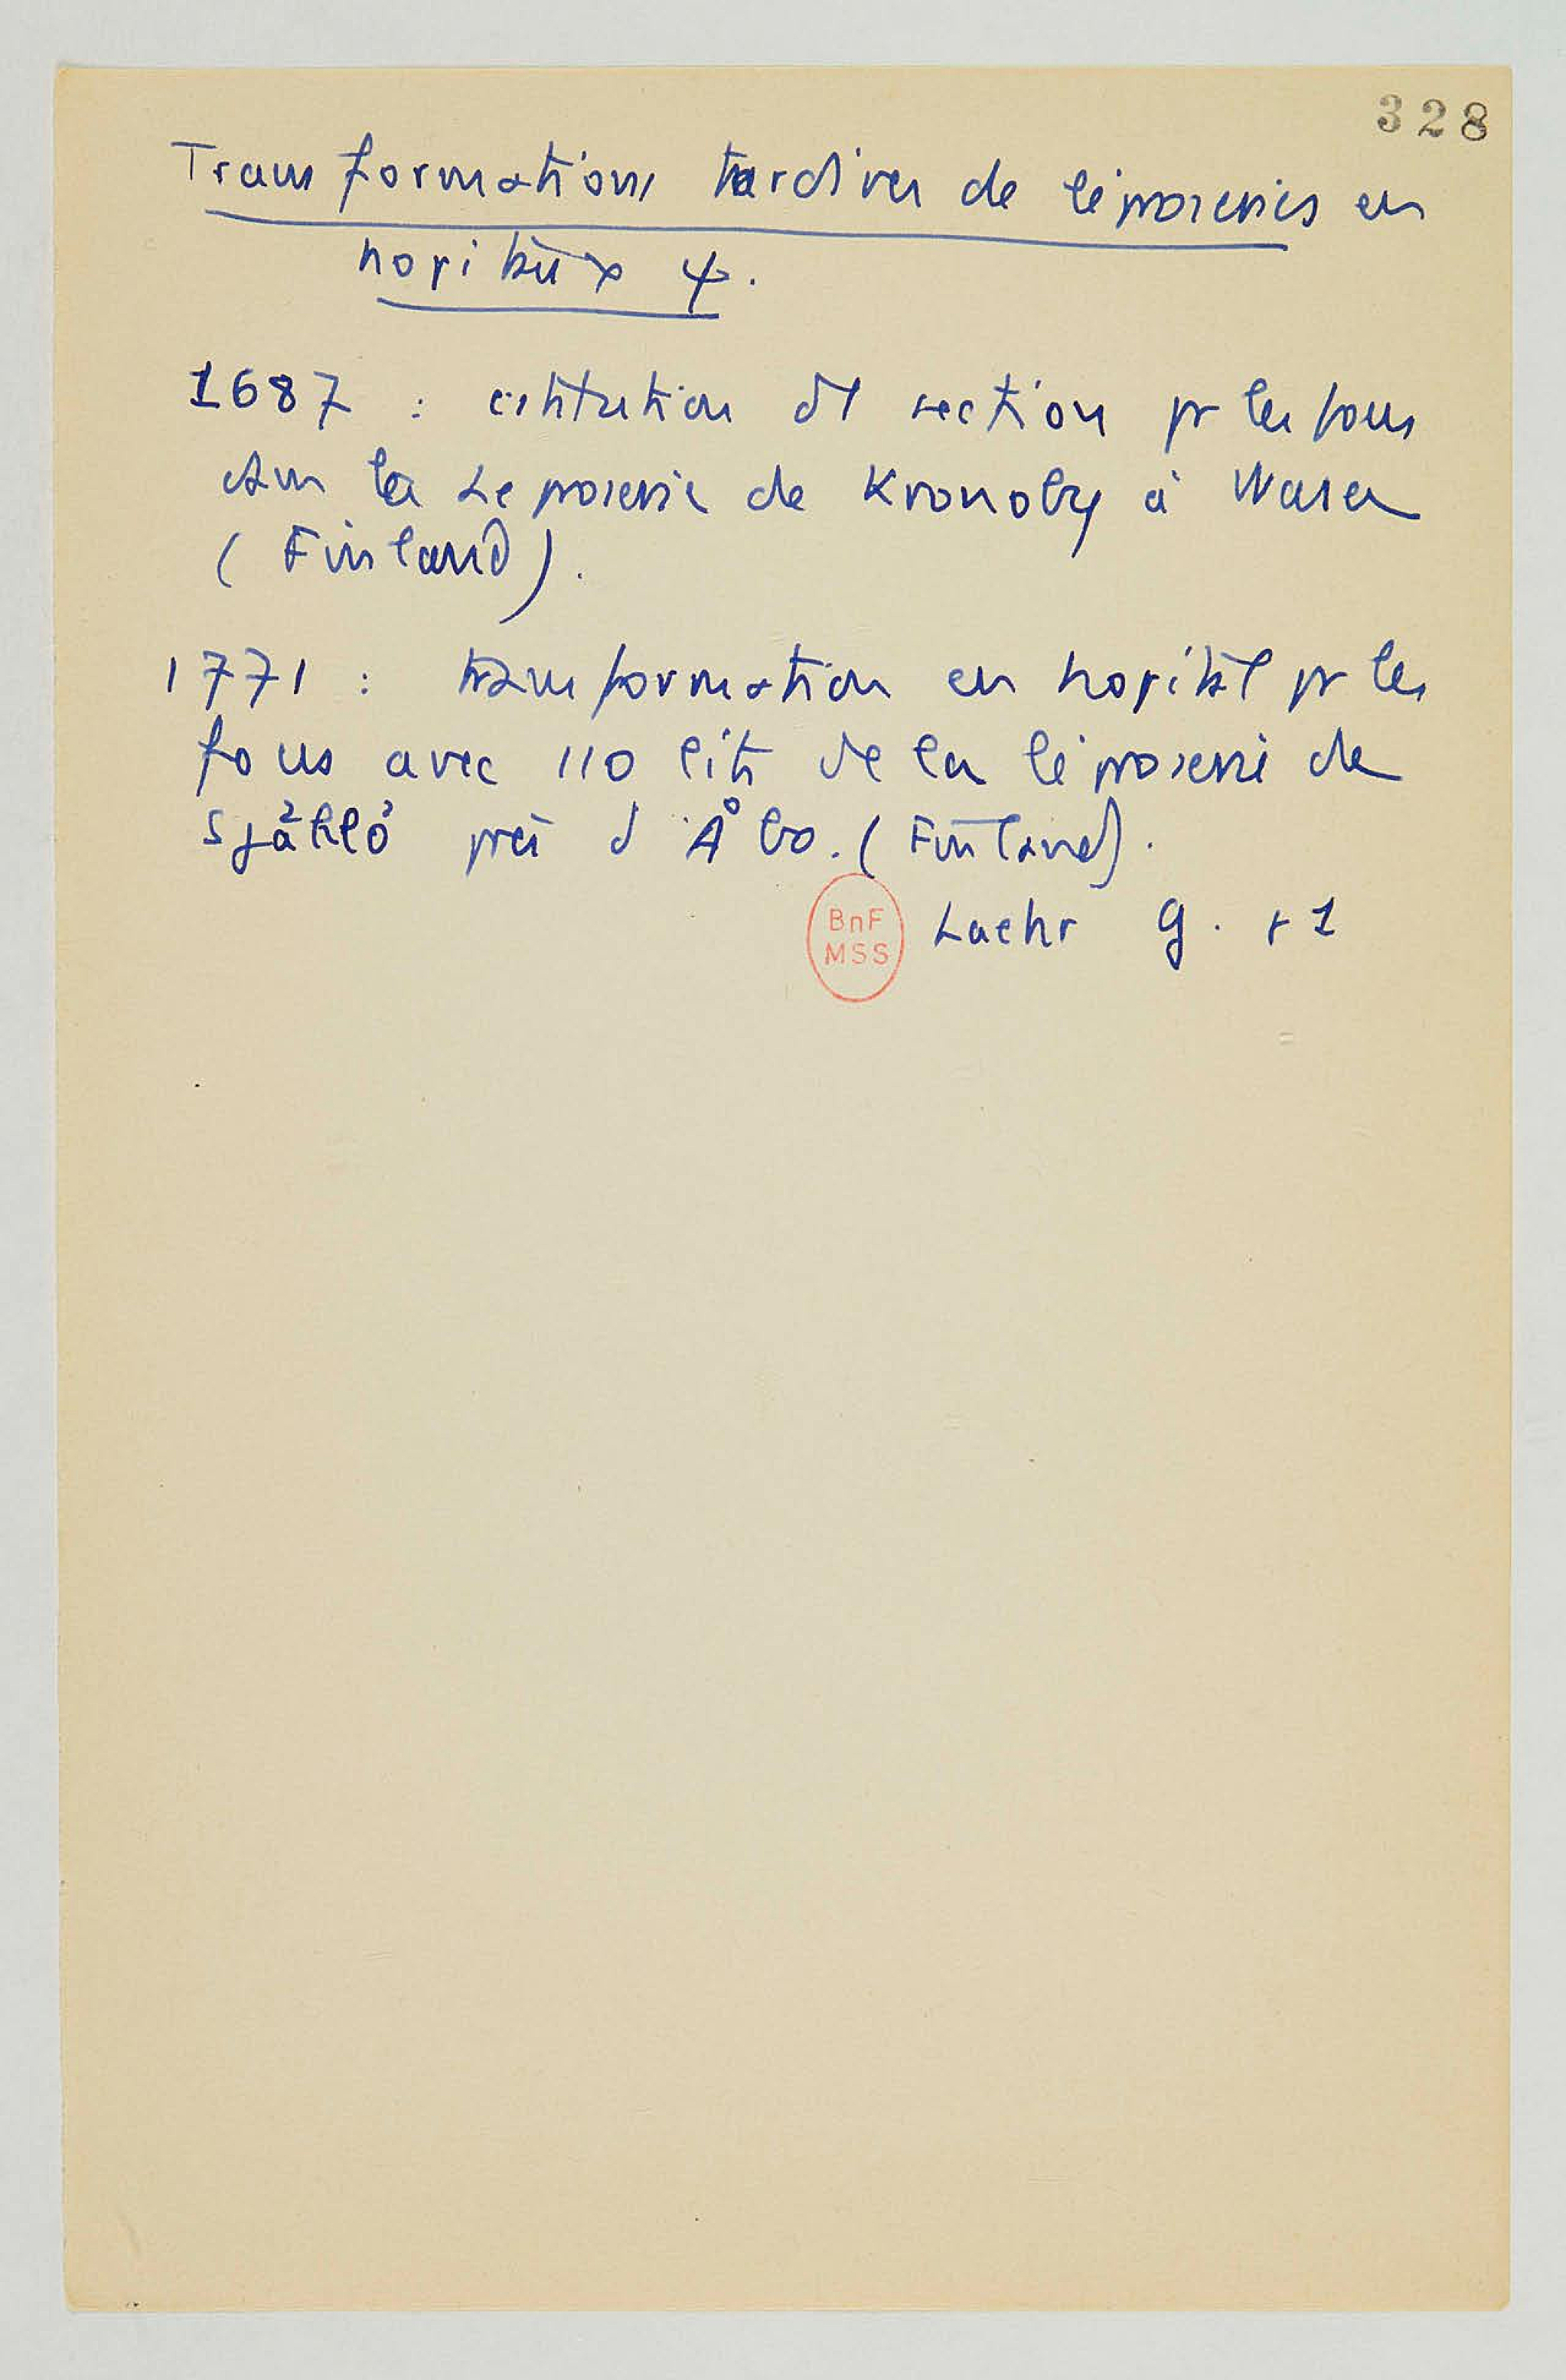 328
Transformations tardives de léproseries en
hopitaux ψ.
1687 : institution d1 section pr les fous
dans la Leproserie de Kronoby à Wasa
(Finland).
1771 : transformation en hopital pr les
fous avec 110 lits de la léproserie de
Själlö près d'Åbo. (Finland).
BnF
MSS
Laehr G.